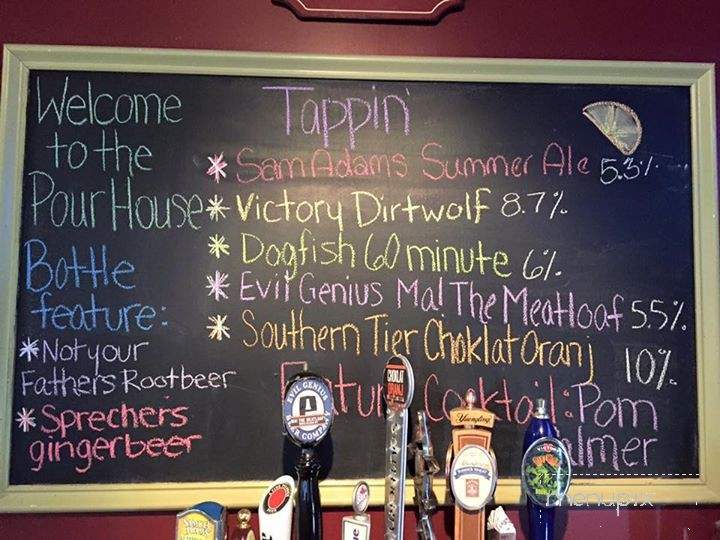 Welcome
to the
Pour House
Bottle
feature:
*Not your
Fathers Rootbeer
*Sprechers
gingerbeer
Tappin'
*Sam Adams Summer Ale 5.3%
*Victory Dirtwolf 8.7%
*Dogfish 60 minute 6%
*Evil Genius Ma! The Meatloaf 5.5%
*Southern Tier Choklat Oranj 10%
Cocktail: Pom
EVIL GENIUS
CHOKLAT
ORANJ
Yuengling
menupix